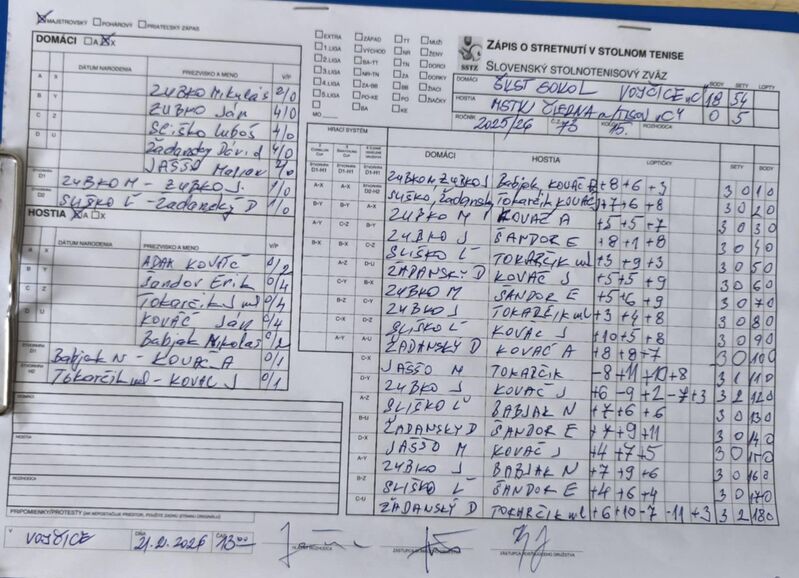 MAJSTROVSKÝ POHÁROVÝ PRIATEĽSKÝ ZÁPAS
DOMÁCI A X
DÁTUM NARODENIA PRIEZVISKO A MENO V/P
A X ZUBKO Mikuláš 2/0
B Y ZUBKO Ján 4/0
C Z SLIŠKO Ľuboš 4/0
D U Žadanský Dávid 4/0
JAŠŠO 2/0
D1 ZUBKO M - ZUBKO J. 1/0
D2 SLIŠKO Ľ - Žadanský D 1/0
HOSTIA A X
DÁTUM NARODENIA PRIEZVISKO A MENO V/P
A X ADAM KOVÁČ 0/2
B Y Šándor Erik 0/4
C Z Tokarčik ml 0/4
D U KOVÁČ Ján 0/4
Babjak Mikoláš 0/2
Babjak N - KOVÁČ A 0/1
Tokarčik ml - KOVÁČ J 0/1
DOMÁCI
HOSTIA
ROZHODCA
PRIPOMIENKY/PROTESTY
EXTRA ZÁPAD TT MUŽI
1.LIGA VÝCHOD NR ŽENY
2.LIGA BA-TT TN DORCI
3.LIGA NR-TN ZA DORKY
4.LIGA ZA-BB BB ŽIACI
5.LIGA PO-KE PO ŽIAČKY
BA KE
MO
SSTZ
ZÁPIS O STRETNUTÍ V STOLNOM TENISE
SLOVENSKÝ STOLNOTENISOVÝ ZVÄZ
BODY SETY LOPTY
DOMÁCI ŠKST SOKOL VOJČICE "C" 18 54
HOSTIA MSTK ČIERNA n/TISOU "C" 0 5
ROČNÍK 2025/26 15. ROZHODCA
HRACÍ SYSTÉM
DOMÁCI HOSTIA LOPTIČKY SETY BODY
ZUBKO M ZUBKO J Babjak, KOVÁČ A +8 +6 +3 3 0 1 0
SLIŠKO, Žadanský Tokarčik KOVÁČ +7 +6 +8 3 0 2 0
ZUBKO M KOVÁČ A +5 +5 +7 3 0 3 0
ZUBKO J ŠÁNDOR E +8 +1 +8 3 0 4 0
SLIŠKO Ľ TOKARČIK ml +3 +9 +3 3 0 5 0
ŽADANSKÝ D KOVÁČ J +5 +5 +9 3 0 6 0
ZUBKO M ŠÁNDOR E +5 +6 +9 3 0 7 0
ZUBKO J TOKARČIK ml +3 +4 +8 3 0 8 0
SLIŠKO Ľ KOVÁČ J +10 +5 +8 3 0 9 0
ŽADANSKÝ D KOVÁČ A +8 +8 +7 3 0 10 0
JAŠŠO M TOKARČIK -8 +11 +10 +8 3 1 11 0
ZUBKO J KOVÁČ J +6 -9 +2 -7 +3 3 2 12 0
SLIŠKO Ľ BABJAK N +7 +6 +6 3 0 13 0
ŽADANSKÝ D ŠÁNDOR E +7 +9 +11 3 0 14 0
JAŠŠO M KOVÁČ J +4 +7 +5 3 0 15 0
ZUBKO J BABJAK N +7 +9 +6 3 0 16 0
SLIŠKO Ľ ŠÁNDOR E +4 +6 +4 3 0 17 0
ŽADANSKÝ D TOKARČIK ml +6 +10 -7 -11 +3 3 2 18 0
V VOJČICE DŇA 13:00